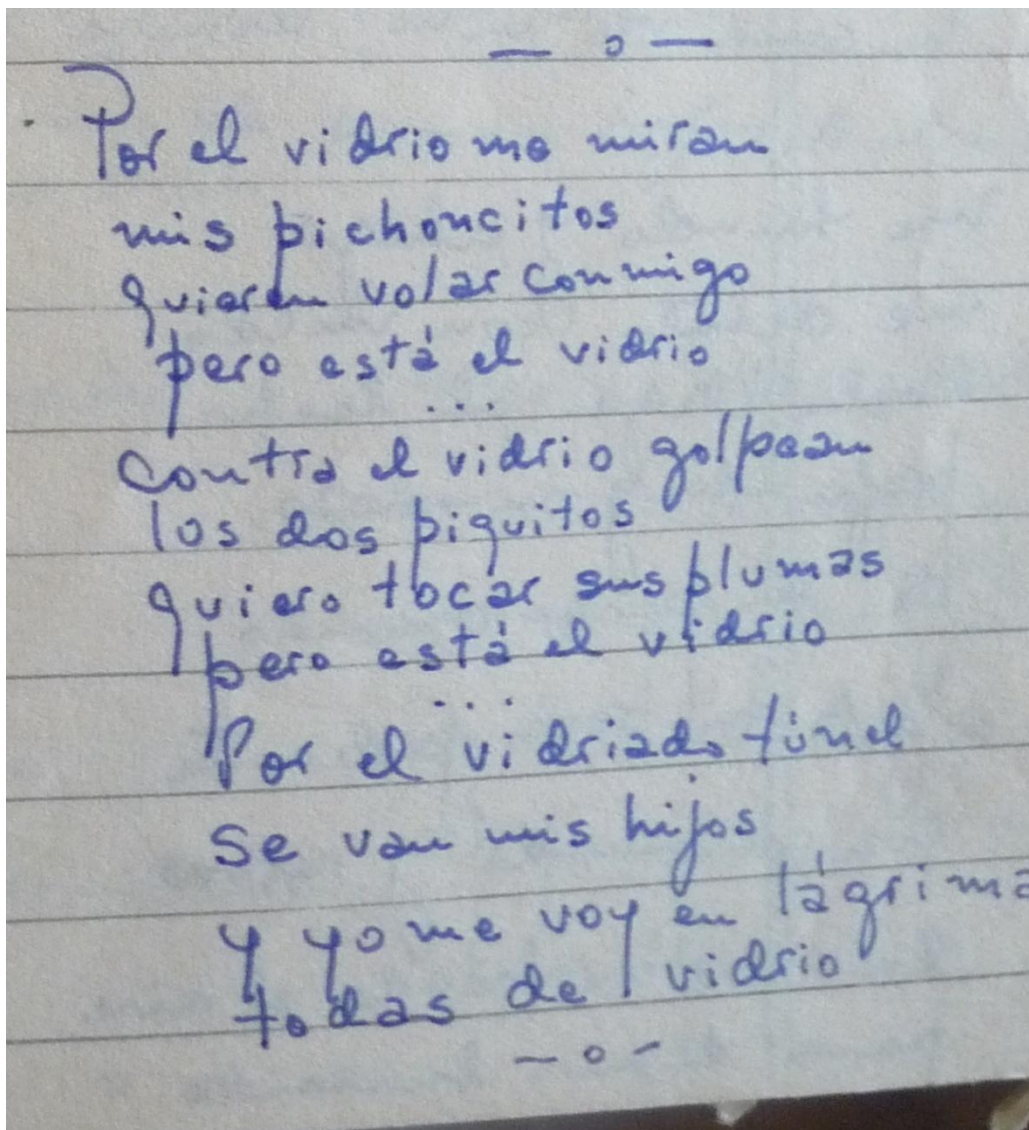 — o —
Por el vidrio me miran
mis pichoncitos
quieren volar conmigo
pero está el vidrio
...
Contra el vidrio golpean
los dos piquitos
quiero tocar sus plumas
pero está el vidrio
...
Por el vidriado túnel
se van mis hijos
y yo me voy en lágrima
todas de vidrio
— o —